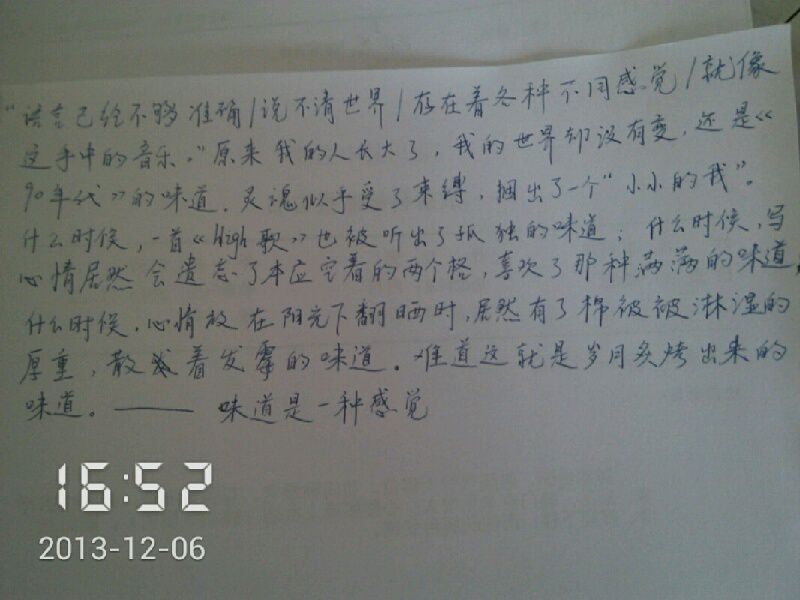 “语言已经不够准确/说不清世界/存在着各种不同感觉/就像
这手中的音乐。”原来我的人长大了，我的世界却没有变，还是《
90年代》的味道。灵魂似乎受了束缚，捆出了一个“小小的我”。
什么时候，一首《High歌》也被听出了孤独的味道；什么时候，写
心情居然会遗忘了本应空着的两个格，喜欢了那种满满的味道，
什么时候，心情放在阳光下翻晒时，居然有了棉被被淋湿的
厚重，散发着发霉的味道。难道这就是岁月炙烤出来的
味道。—— 味道是一种感觉
16:52
2013-12-06